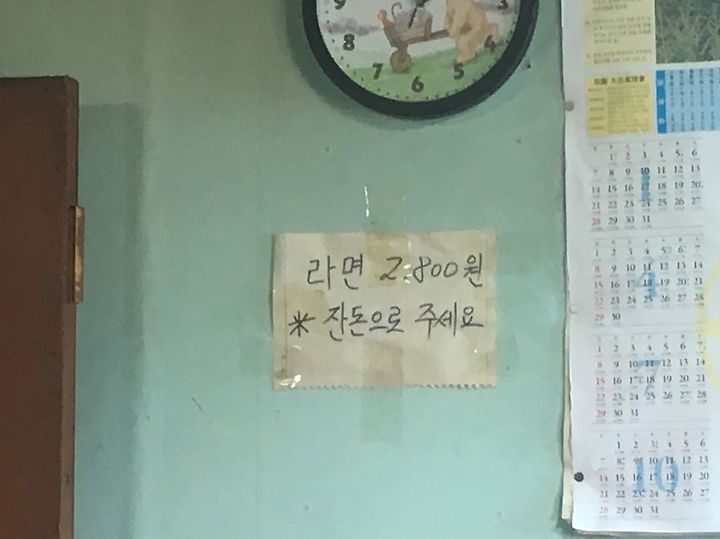 9
8
7
6
5
4
3
라면 2,800원
※ 잔돈으로 주세요
1
1 2 3 4 5 6
7 8 9 10 11 12 13
14 15 16 17 18 19 20
21 22 23 24 25 26 27
28 29 30 31
4
1 2 3 4 5 6 7
8 9 10 11 12 13 14
15 16 17 18 19 20 21
22 23 24 25 26 27 28
29 30
7
1 2 3 4 5 6 7
8 9 10 11 12 13 14
15 16 17 18 19 20 21
22 23 24 25 26 27 28
29 30 31
10
1 2 3 4 5 6
7 8 9 10 11 12 13
14 15 16 17 18 19 20
21 22 23 24 25 26 27
28 29 30 31